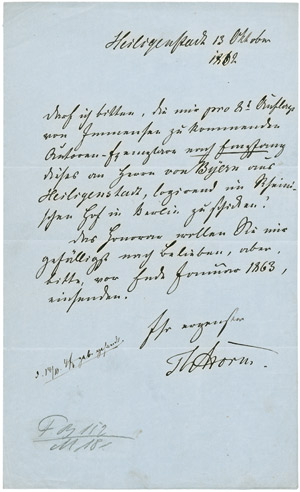 Heiligenstadt 13 Oktober
1862.
Darf ich bitten, die mir pro 8t Auflage
von Immensee zukommenden
Autoren-Exemplare nach Empfang
dieses an Herrn von Byern aus
Heiligenstadt, logirend im Rheini-
schen Hof in Berlin zu schicken?
Das Honorar wollen Sie mir
gefälligst nach Belieben, aber,
bitte, vor Ende Januar 1863,
einsenden.
Ihr ergebenster
ThStorm.